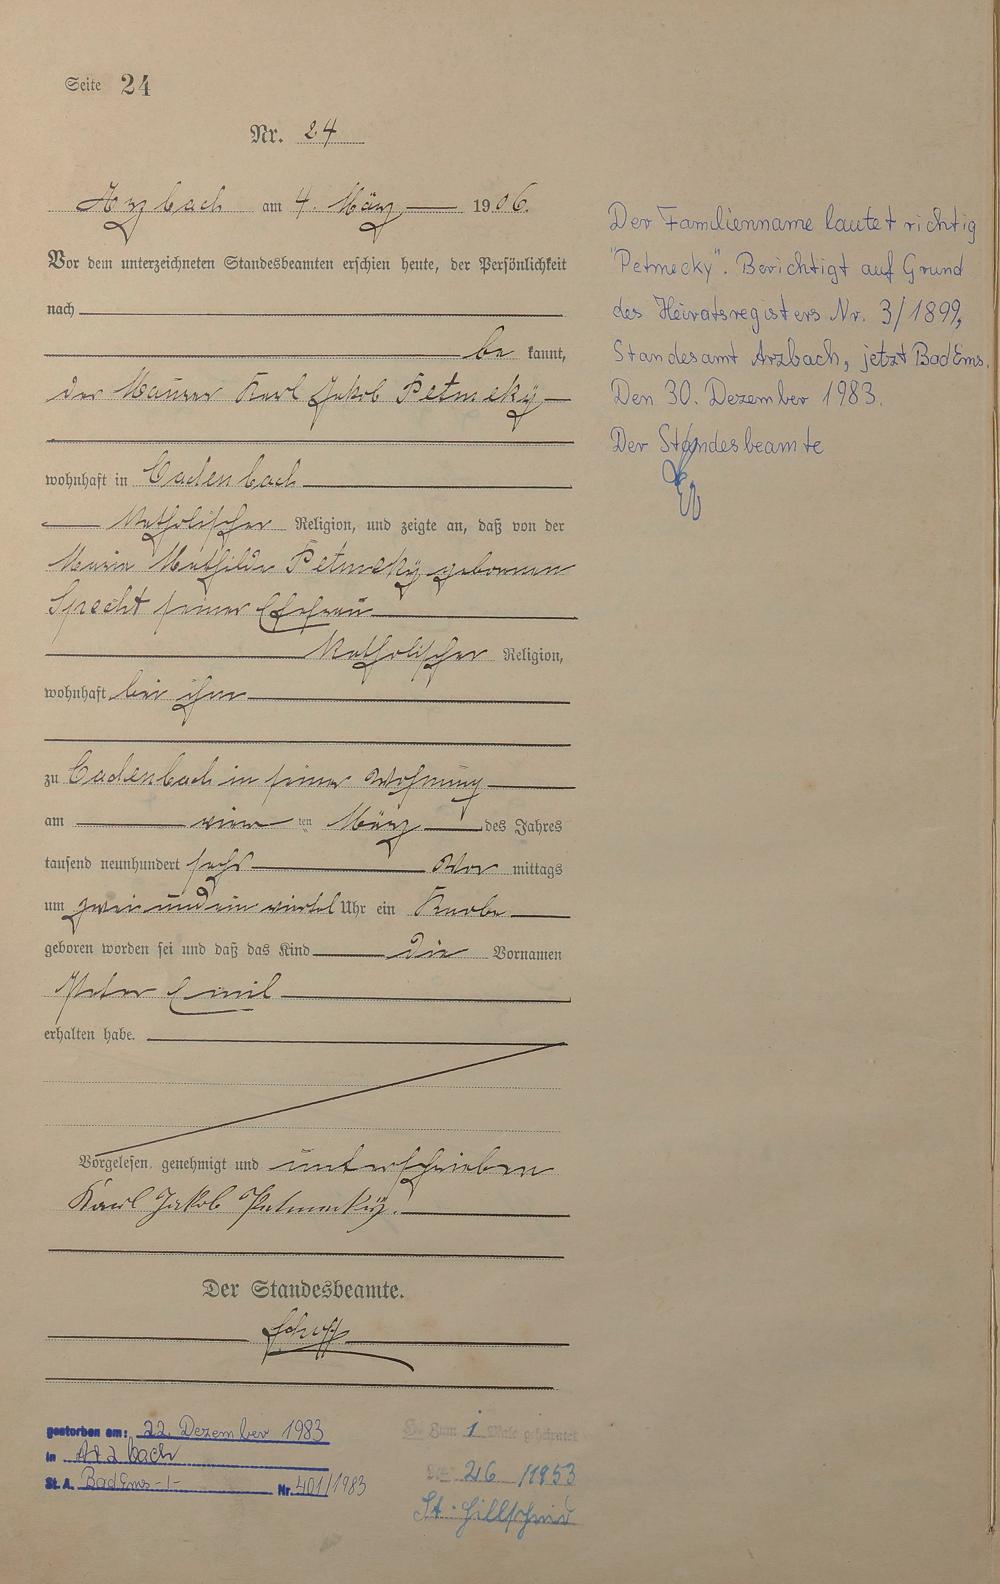 Seite 24
Nr. 24
Arzbach am 4. März 1906.
Vor dem unterzeichneten Standesbeamten erschien heute, der Persönlichkeit
nach
be kannt,
der Maurer Karl Jakob Petmeky
wohnhaft in Cadenbach
katholischer Religion, und zeigte an, daß von der
Maria Mathilde Petmeky geborenen
Specht seiner Ehefrau
katholischer Religion,
wohnhaft bei ihm
zu Cadenbach in seiner Wohnung
am vierten März des Jahres
tausend neunhundert sechs Vor mittags
um zwei und ein viertel Uhr ein Knabe
geboren worden sei und daß das Kind die Vornamen
Peter Emil
erhalten habe.
Vorgelesen, genehmigt und unterschrieben
Karl Jakob Petmecky.
Der Standesbeamte.
gestorben am: 22. Dezember 1983
in Arzbach
St. A. Bad Ems -1- Nr. 401/1983
Zum 1 Male geheiratet
26 /1953
St. Hillscheid
Der Familienname lautet richtig
"Petmecky". Berichtigt auf Grund
des Heiratsregisters Nr. 3/1899,
Standesamt Arzbach, jetzt Bad Ems.
Den 30. Dezember 1983.
Der Standesbeamte